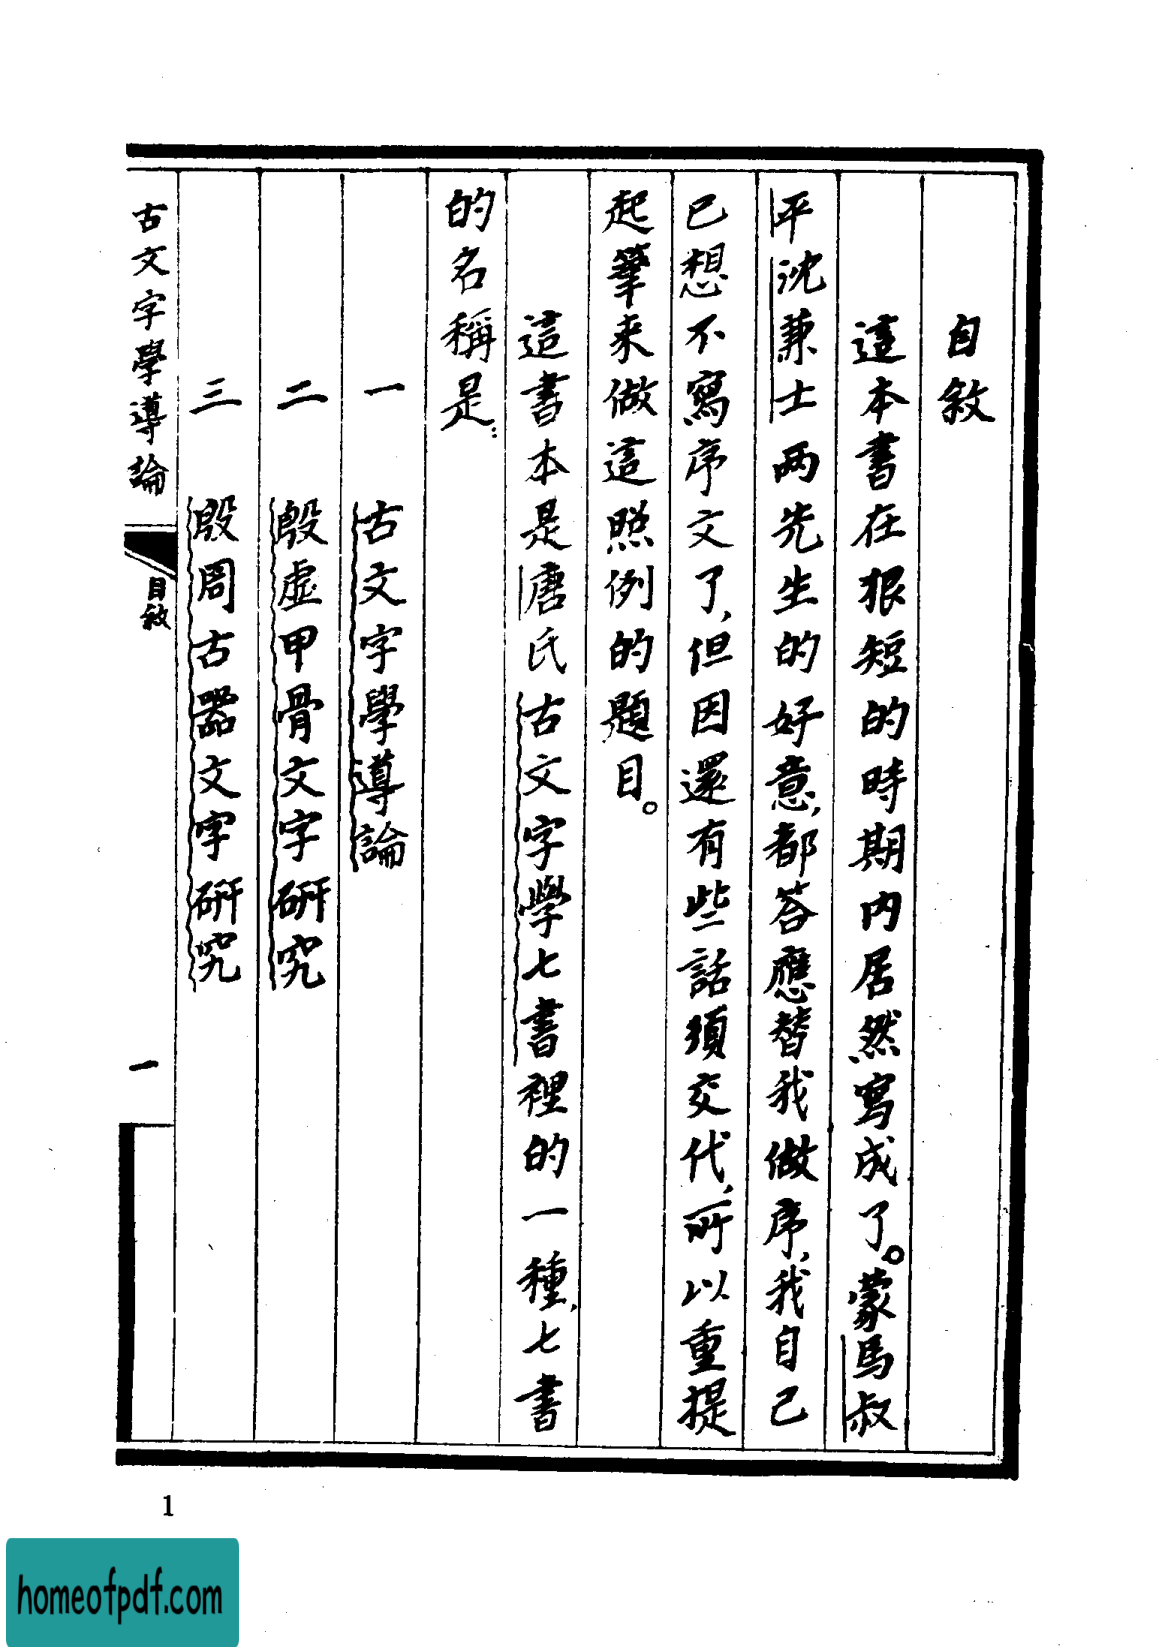 自敘
這本書在狠短的時期内居然寫成了。蒙馬叔
平沈兼士两先生的好意，都答應替我做序，我自己
已想不寫序文了，但因還有些話須交代，所以重提
起筆来做這照例的題目。
這書本是唐氏古文字學七書裡的一種，七書
的名稱是：
一　古文字學導論
二　殷虛甲骨文字研究
三　殷周古器文字研究
古文字學導論
自敘
一
1
homeofpdf.com